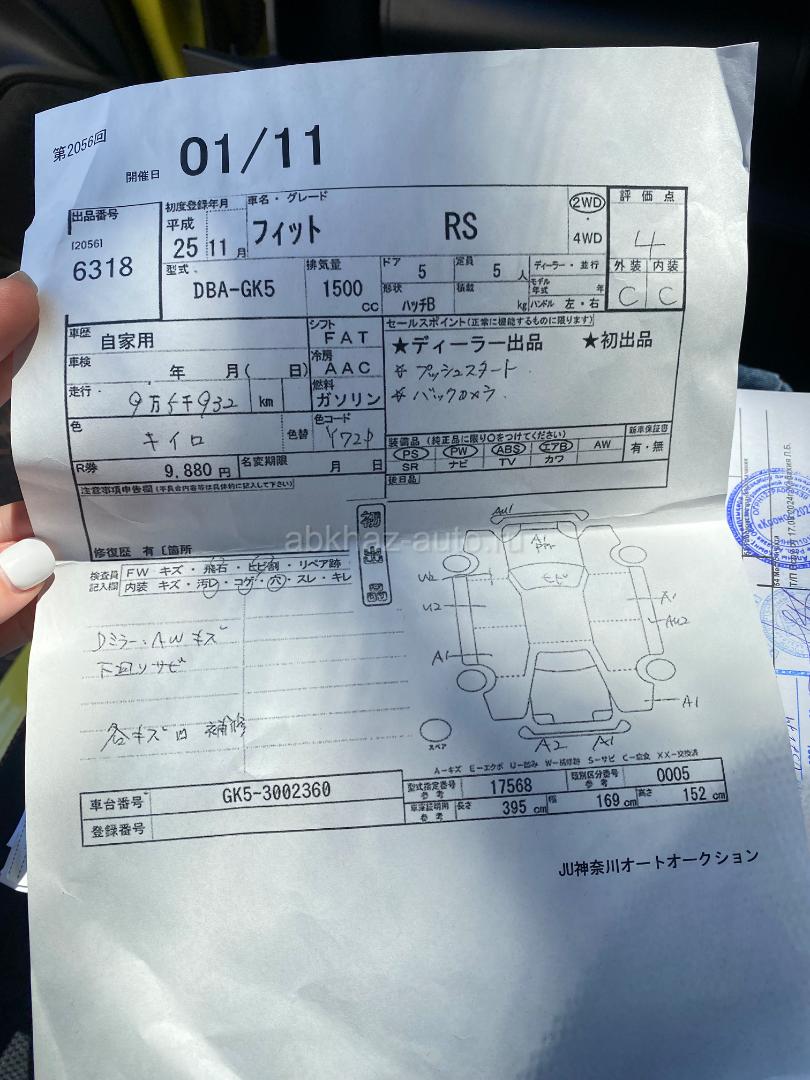 第2056回
開催日 01/11
出品番号
[2056]
6318
初度登録年月
平成
25 11 月
車名・グレード
フィット RS
2WD
・
4WD
評価点
4
外装 内装
C C
型式
DBA-GK5
排気量
1500
CC
ドア 5
定員 5 人
形状
ハッチB
積載
kg
ディーラー・並行
モデル年式 年
ハンドル 左・右
車歴
自家用
シフト
FAT
車検
年 月( 日)
冷房
AAC
走行
km
燃料
ガソリン
色
キイロ
色替
色コード
R券
9,880 円
名変期限
月 日
セールスポイント(正常に機能するものに限ります)
★ディーラー出品 ★初出品
☆ プッシュスタート
☆ バックカメラ
装備品(純正品に限り○をつけてください)
PS PW ABS エアB AW
SR ナビ TV カワ
新車保証書
有・無
後日品
注意事項申告欄(不具合内容等は具体的に記入して下さい)
修復歴 有 [箇所
初出品
abkhaz-auto.ru
検査員
記入欄
FW キズ・飛石・ヒビ割・リペア跡
内装 キズ・汚レ・コゲ・穴・スレ・キレ
Dミラー、AWキズ
下回りサビ
各キズ凹補修
A1
U2
U2
A1
A1
AU2
A1
A2
A1
スペア
A-キズ E-エクボ U-凹み W-補修跡 S-サビ C-腐食 XX-交換済
車台番号 GK5-3002360
登録番号
型式指定番号
参考
17568
類別区分番号
参考
0005
車庫証明用
参考
長さ 395 cm
幅 169 cm
高さ 152 cm
JU神奈川オートオークション